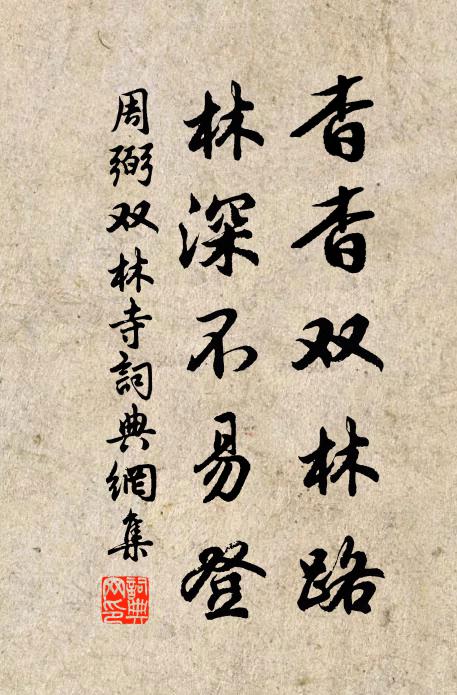 杳杳双林路
林深不易登
周弼双林寺詞典網集
詞典網印